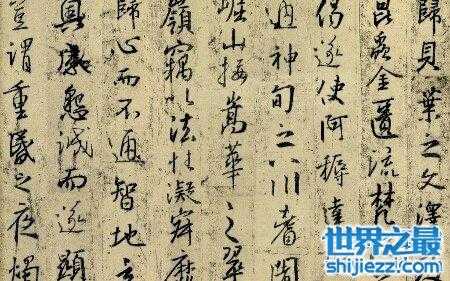 歸貝葉之文澤
昆蟲金匱流梵
偈遂使阿耨達
通神甸之八川耆闍
崛山接嵩華之翠
嶺竊以法性凝寂靡
歸心而不通智地玄
奧感懇誠而遂顯
豈謂重昏之夜燭
世界之最